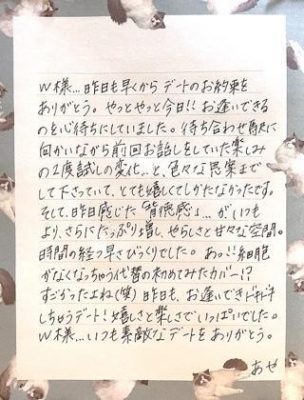 W様…昨日も早くから デートのお約束を
ありがとう。やっとやっと今日!! お逢いできる
のを心待ちにしていました。待ち合わせ駅に
向かいながら前回お話しをしていた楽しみ
の2度試しの変化…と、色々な思案まで
して下さっていて、とても嬉しくてしかたなかったです。
そして、昨日感じた「背徳感」…が いつも
より、さらにたっぷり増し、やらしさと甘々な空間。
時間の経つ早さびっくりでした。あっ!! 細胞
がなくなっちゃう代替の初めてみたカバー!?
すごかったよね(笑) 昨日も、お逢いできドキドキ
しちゃうデート! 嬉しさと楽しさでいっぱいでした。
W様…いつも素敵なデートを ありがとう。
あせ